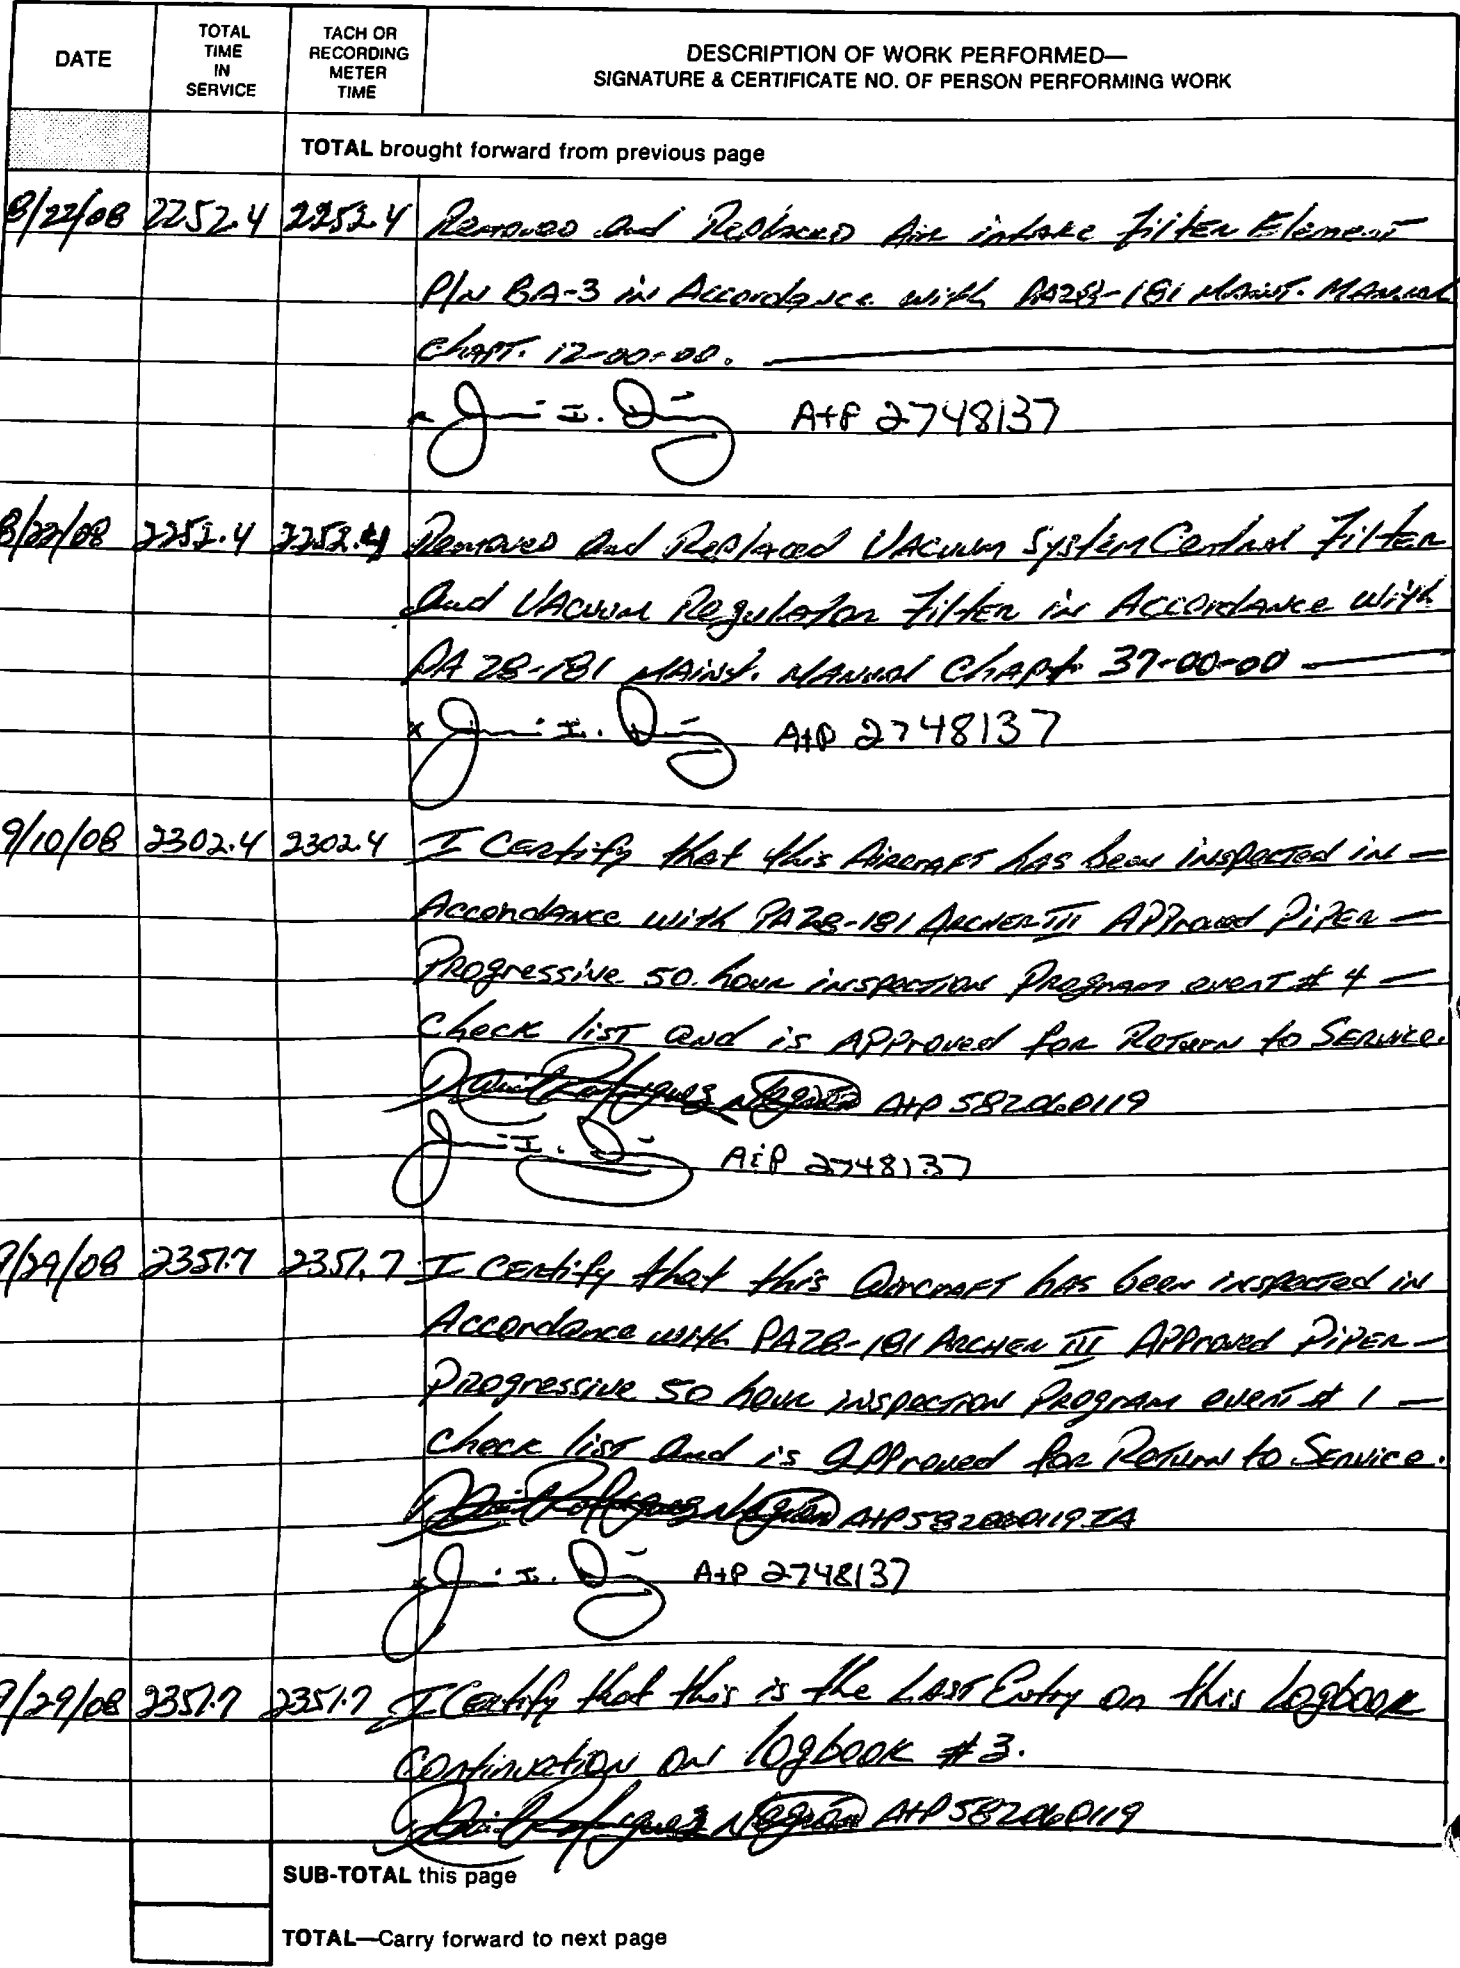 DATE
TOTAL TIME IN SERVICE
TACH OR RECORDING METER TIME
DESCRIPTION OF WORK PERFORMED—
SIGNATURE & CERTIFICATE NO. OF PERSON PERFORMING WORK
TOTAL brought forward from previous page
8/22/08 2252.4 2252.4 Removed and Replaced Air intake filter Element
P/N BA-3 in Accordance with PA28-181 Maint. Manual
Chapt. 12-00-00.
A+P 2748137
8/22/08 2252.4 2252.4 Removed and Replaced Vacuum System Central Filter
and Vacuum Regulator Filter in Accordance with
PA 28-181 Maint. Manual Chapt. 37-00-00
x A+P 2748137
9/10/08 2302.4 2302.4 I Certify that this Aircraft has been inspected in —
Accordance with PA28-181 Archer III Approved Piper —
Progressive 50 hour inspection Program event # 4 —
check list and is Approved for Return to Service.
A+P 582060119
A&P 2748137
9/29/08 2351.7 2351.7 I Certify that this Aircraft has been inspected in
Accordance with PA28-181 Archer III Approved Piper —
Progressive 50 hour inspection Program event # 1 —
check list and is approved for Return to Service.
A+P 582060119 IA
x A+P 2748137
9/29/08 2351.7 2351.7 I Certify that this is the Last Entry on this Logbook
Continuation on logbook #3.
A+P 582060119
SUB-TOTAL this page
TOTAL—Carry forward to next page